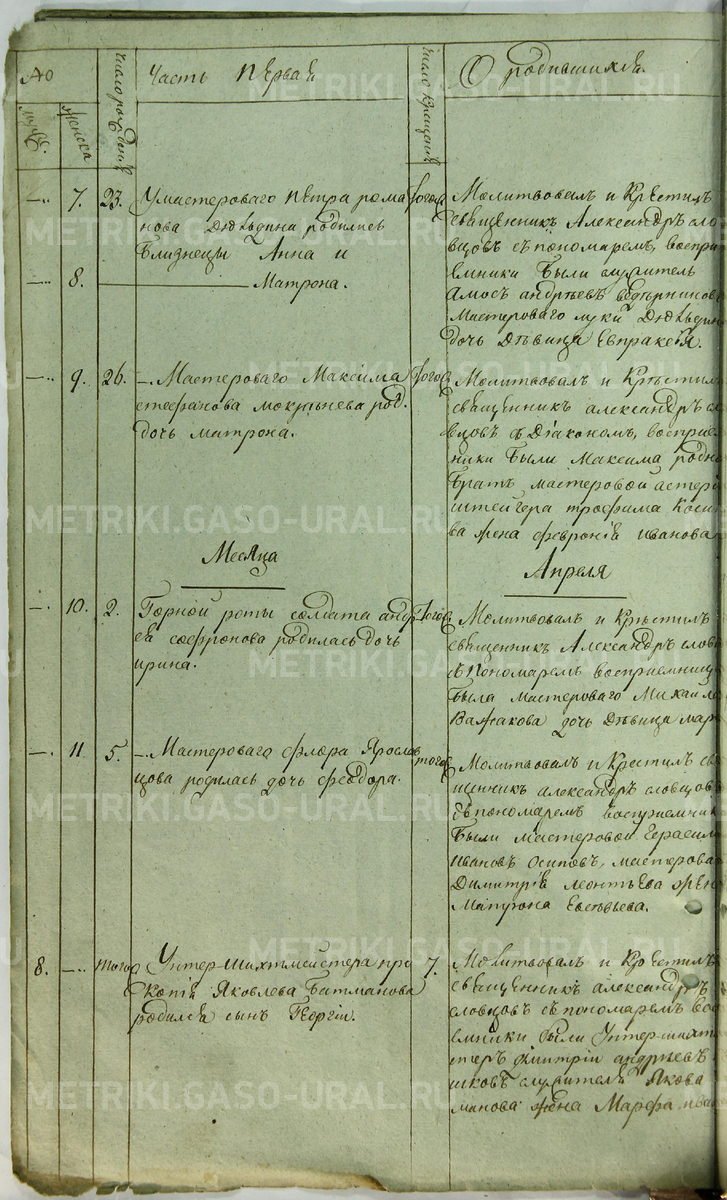 №
Часть первая
О родившихся
мужеск.
женска
число рождения
число крещения
—.. 7. 23. У мастероваго петра рома
нова родились
Близнецы Анна и
8. Матрона.
того
Молитвовалъ и крестилъ
священникъ Александръ сло
вцовъ съ пономаремъ, воспри
емники были служитель
Амосъ андрѣевъ
Мастероваго луки
дочь дѣвица Евпраксія.
—.. 9. 26. — Мастероваго Максима
стефанова мокрѣнева род.
дочь матрона.
того
Молитвовалъ и Крѣстилъ
священникъ александръ сло
вцовъ съ Діакономъ, восприе
ники были Максима родно
братъ мастеровой
штейгера трофима
ва жена февронія иванова
Месяца
Апреля
—. 10. 2. Горной роты солдата андр
ея софронова родилась дочь
ирина.
того
Молитвовалъ и Крѣстилъ
священникъ Александръ слов
съ Пономаремъ восприемница
была мастероваго Михаила
Важакова дочь дѣвица мар
—. 11. 5. — Мастероваго флора Ярослав
цова родилась дочь феодора.
того
Молитвовалъ и Крестилъ свя
щенникъ александръ словцовъ
съ пономаремъ восприемник
были мастеровой Герасимъ
Ивановъ Осиповъ, мастерова
Димитрія леонтьева жен
Матрона Евсѣвьева.
8. —.. того Унтер-шихтмейстера про
копія Яковлева Батманова
родился сынъ Георгіи.
7.
Молитвовалъ и Крестилъ
священникъ александръ
словцовъ съ пономаремъ вос
емники были Унтер-шихт
терь дмитріи андрѣевъ
шковъ служителя Якова
манова жена Марфа ива
METRIKI.GASO-URAL.RU